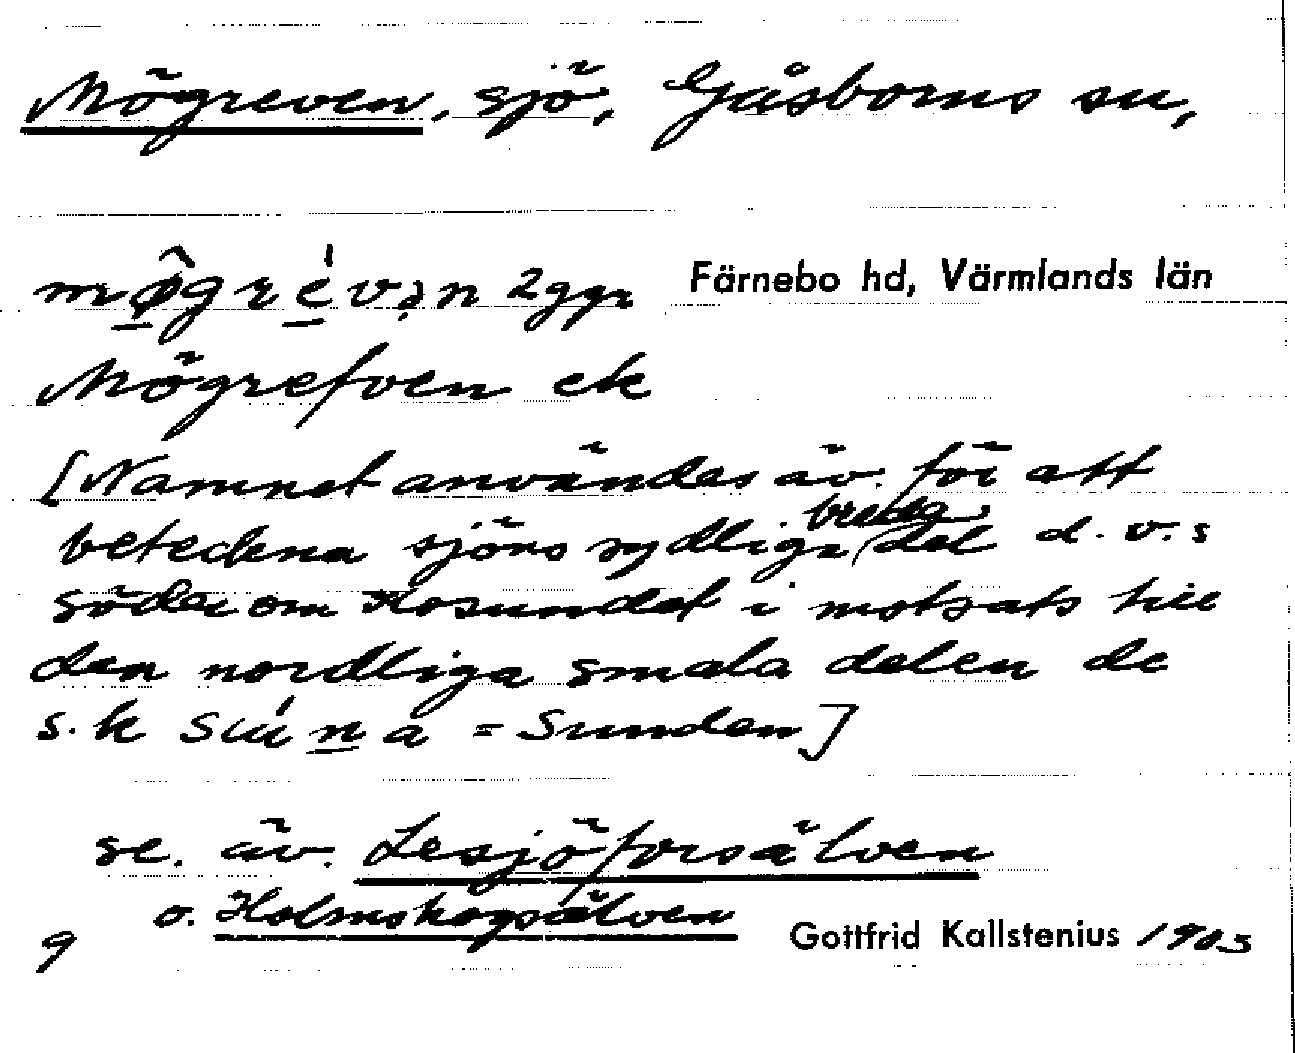 Mögreven, sjö, Gåsborns sn,
Färnebo hd, Värmlands län
mø̂grèvən 2ggr
Mögrefven ek
[Namnet användes äv. för att
betedkna sjöns sydliga breda del d. v. s
söder om Hosundet i motsats till
den nordliga smala delen de
s.k súna = Sunden]
se. äv. Lesjöforsälven
o. Holmskogsälven
9
Gottfrid Kallstenius 1903